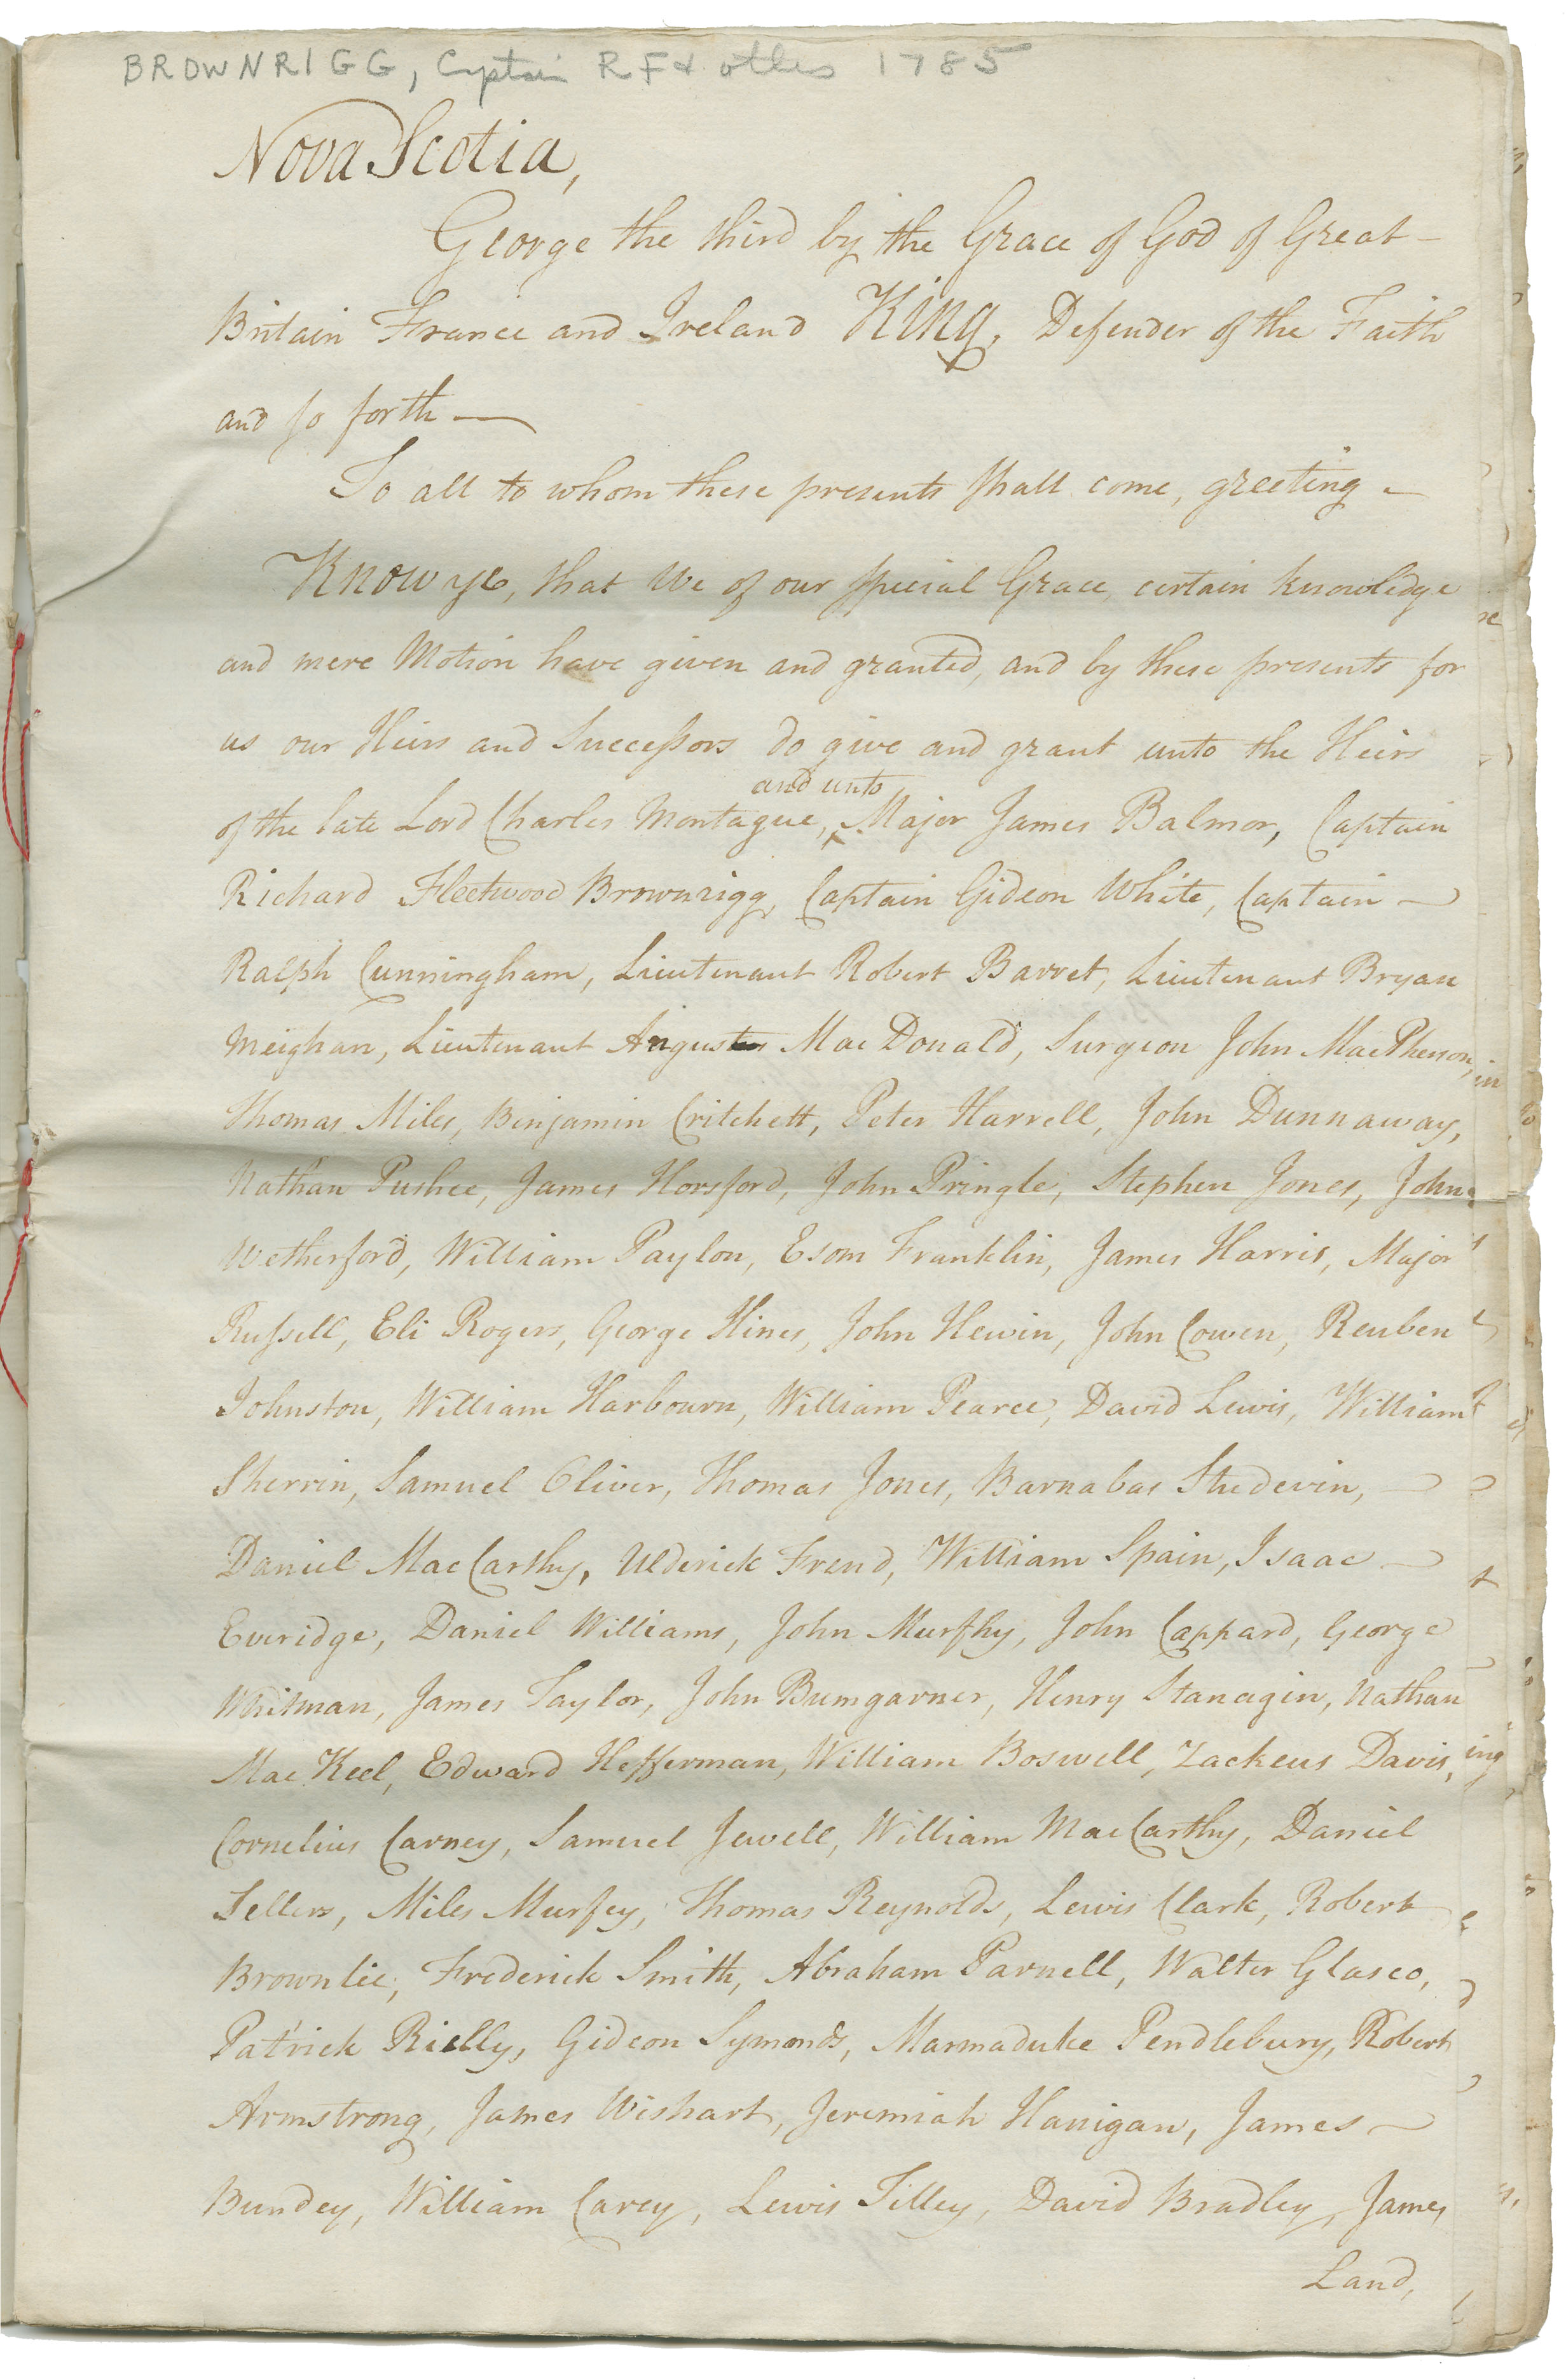 BROWNRIGG, Captain RF & others 1785
Nova Scotia,
George the third by the Grace of God of Great
Britain France and Ireland King, Defender of the Faith
and so forth —
To all to whom these presents shall come, greeting —
Know ye, that We of our special Grace, certain knowledge
and mere Motion have given and granted, and by these presents for
us our Heirs and Successors do give and grant unto the Heirs
and unto
of the late Lord Charles Montague, Major James Balmor, Captain
Richard Fleetwood Brownrigg, Captain Gideon White, Captain —
Ralph Cunningham, Lieutenant Robert Barret, Lieutenant Bryan
Meighan, Lieutenant Angus MacDonald, Surgeon John MacPherson,
Thomas Miles, Benjamin Critchett, Peter Harrell, John Dunnaway,
Nathan Pushee, James Horsford, John Pringle, Stephen Jones, John
Wetherford, William Paylon, Esom Franklin, James Harris, Major
Russell, Eli Rogers, George Hines, John Hewin, John Cowen, Reuben
Johnston, William Harbourn, William Pearce, David Lewis, William
Sherrin, Samuel Oliver, Thomas Jones, Barnabas Shedevin, —
Daniel MacCarthy, Ulderick Frend, William Spain, Isaac —
Everidge, Daniel Williams, John Murphy, John Cappard, George
Whitman, James Taylor, John Bumgarner, Henry Stanagin, Nathan
MacKeel, Edward Hefferman, William Boswell, Zackeus Davis,
Cornelius Carney, Samuel Jewell, William MacCarthy, Daniel
Sellers, Miles Murfey, Thomas Reynolds, Lewis Clark, Robert
Brownlie, Frederick Smith, Abraham Parnell, Walter Glasco,
Patrick Rielly, Gideon Symonds, Marmaduke Pendlebury, Robert
Armstrong, James Wishart, Jeremiah Hanigan, James —
Bundey, William Carey, Lewis Tilley, David Bradley, James
Land,